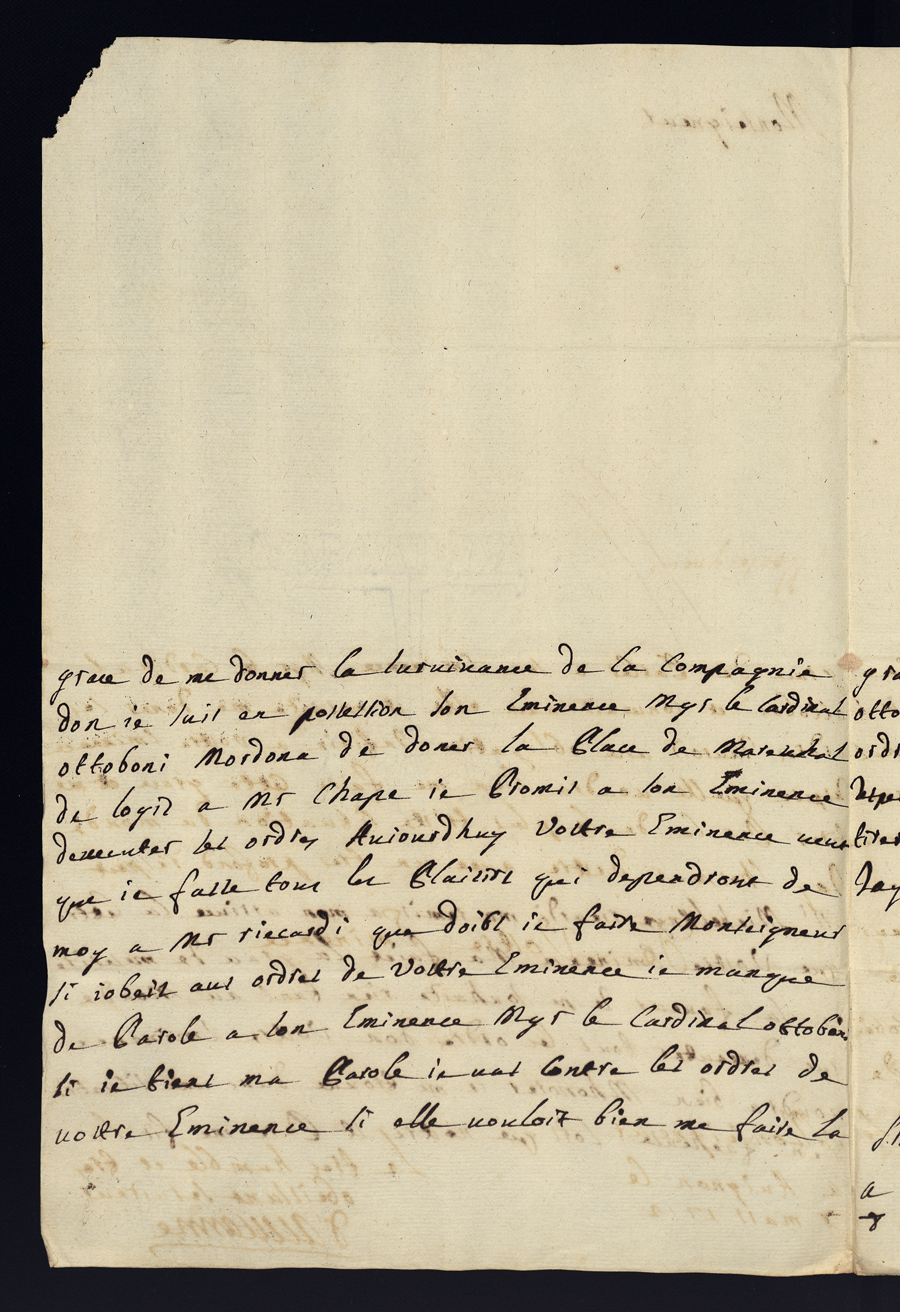 grace de me donner la survivance de la Compagnie
don ie suis en possession son Eminence Mgr le Cardinal
ottoboni Mordona de doner la Place de Mareschal
de logis a Mr Chape ie Promis a son Eminence
dexecuter ses ordres Aujourdhuy Vostre Eminence veut
que ie fasse tous les Plaisirs qui dependront de
moy a Mr riccardi que doibt ie faire Monseigneur
si iobeis aus ordres de Vostre Eminence ie manque
de Parole a son Eminence Mgr le Cardinal ottoboni
si ie tiens ma Parole ie vas Contre les ordres de
vostre Eminence si elle vouloit bien me faire la